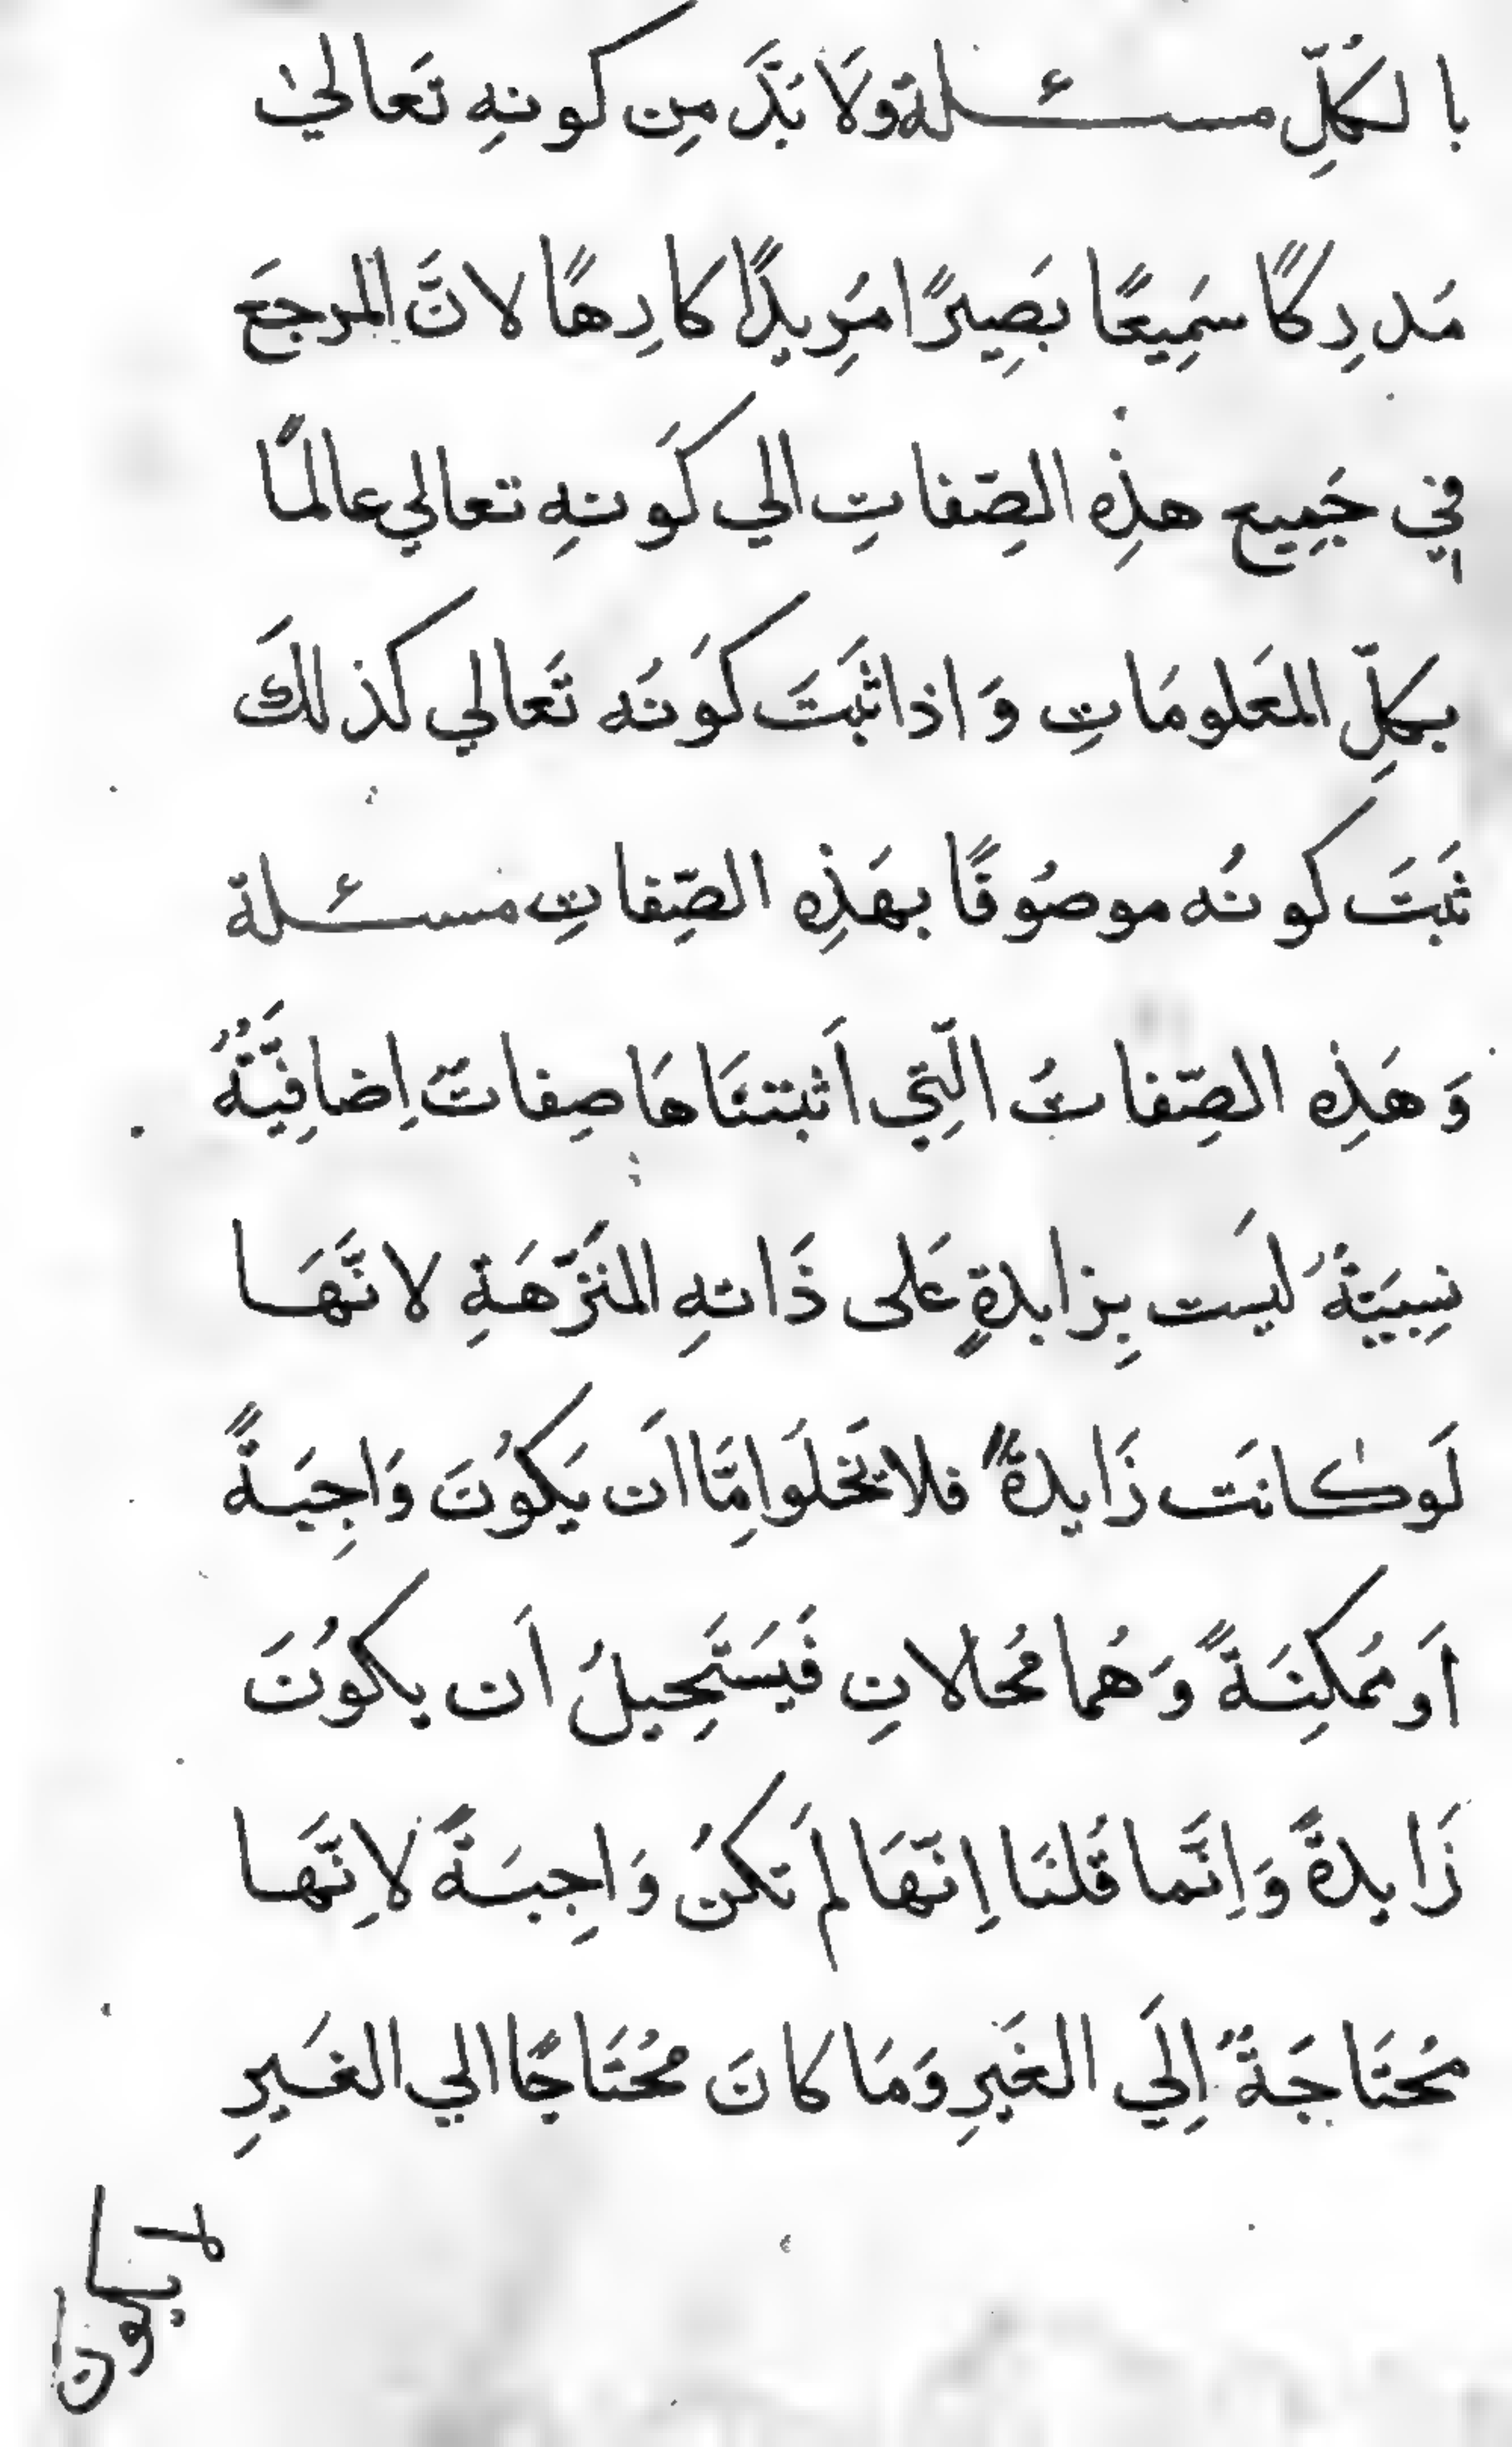 بالكُلِّ مسـئـلة ولَا بَدَّ مِن كونهِ تَعالىٰ
مَدرِكًا سَمِيعًا بَصِيرًا مَرِيدًا كارِهًا لانَّ المرجعَ
فِي جَمِيع هذِهِ الصِّفاتِ الي كَونهِ تعالي عالمًا
بكلِّ المعَلومَاتِ وَاذا ثبَتَ كَونَه تَعالي كذلكَ
ثبَتَ كونُه موصُوفًا بهَذِهِ الصِّفاتِ مسـئـلة
وَهَذِهِ الصِّفاتُ الَّتِي اَثبتنَاهَا صِفاتٌ اِضافِيَّةٌ
نِسبَيَةٌ ليسَت بِزايدةٍ عَلى ذَاتهِ المنَزّهَةِ لانَّهَا
لَو كانَت زَايدةً فلا تَخلَوا مِّا اَن يَكوُنَ وَاجِبَةً
اَو ممُكِنَةً وَهُما مُحالانِ فَيَستَحِيلُ اَن يكوُنَ
زَايدةً وَاِنَّما قُلنَا اِنّهَا لَم تَكنُ وَاجِبَةً لاِنَّهَا
مُحتَاجَةٌ اِلَي الغَيرِ وَمَا كانَ مُحتَاجًا الي الغَيرِ
لا يكون